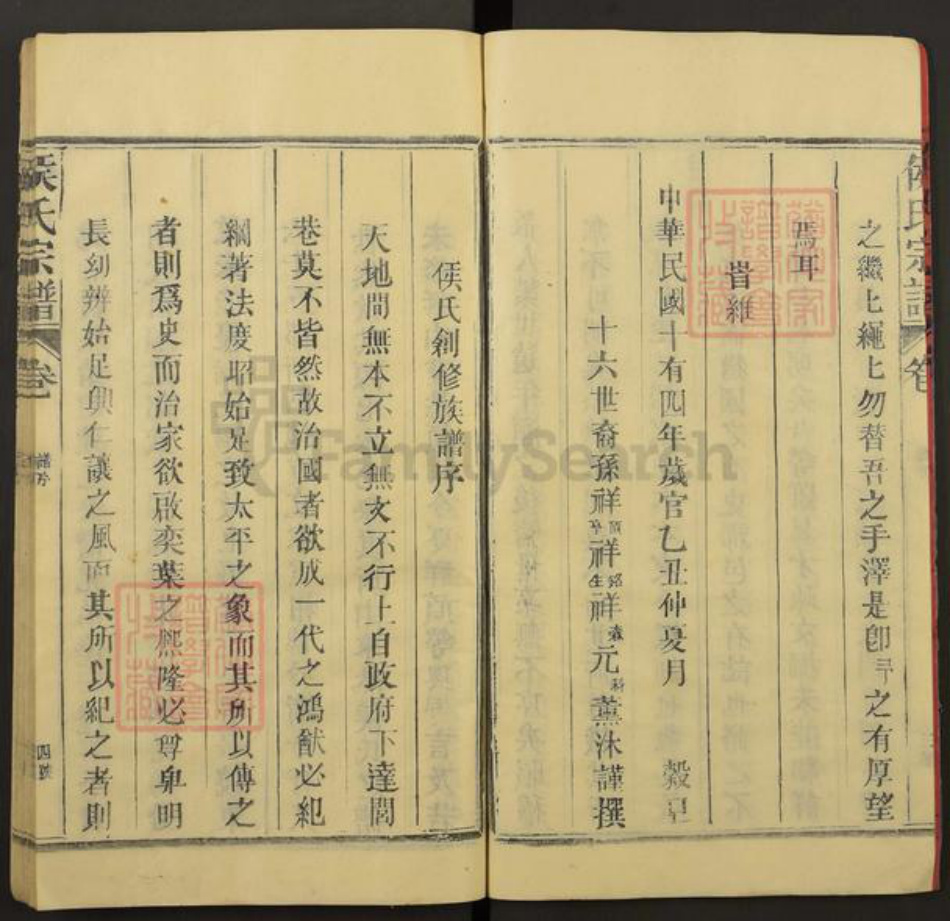 侯氏宗譜 卷
之繼上繩上勿替吾之手澤是卽予之有厚望
焉耳
旹維
中華民國十有四年歲官乙丑仲夏月 穀旦
十六世裔孫祥 祥 祥 元 薰沐謹撰
侯氏創修族譜序
天地間無本不立無文不行上自政府下達閭
巷莫不皆然故治國者欲成一代之鴻猷必紀
綱著法度昭始足致太平之象而其所以傳之
者則爲史而治家欲啟奕葉之熙隆必尊卑明
長幼辨始足興仁讓之風而其所以紀之者則
侯氏宗譜 卷
FamilySearch